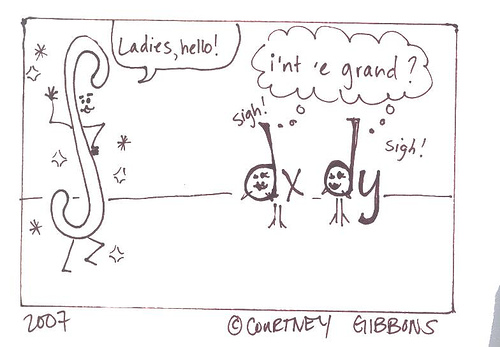 Ladies, hello!
i'nt 'e grand?
sigh!
sigh!
dx dy
2007 © COURTNEY GIBBONS